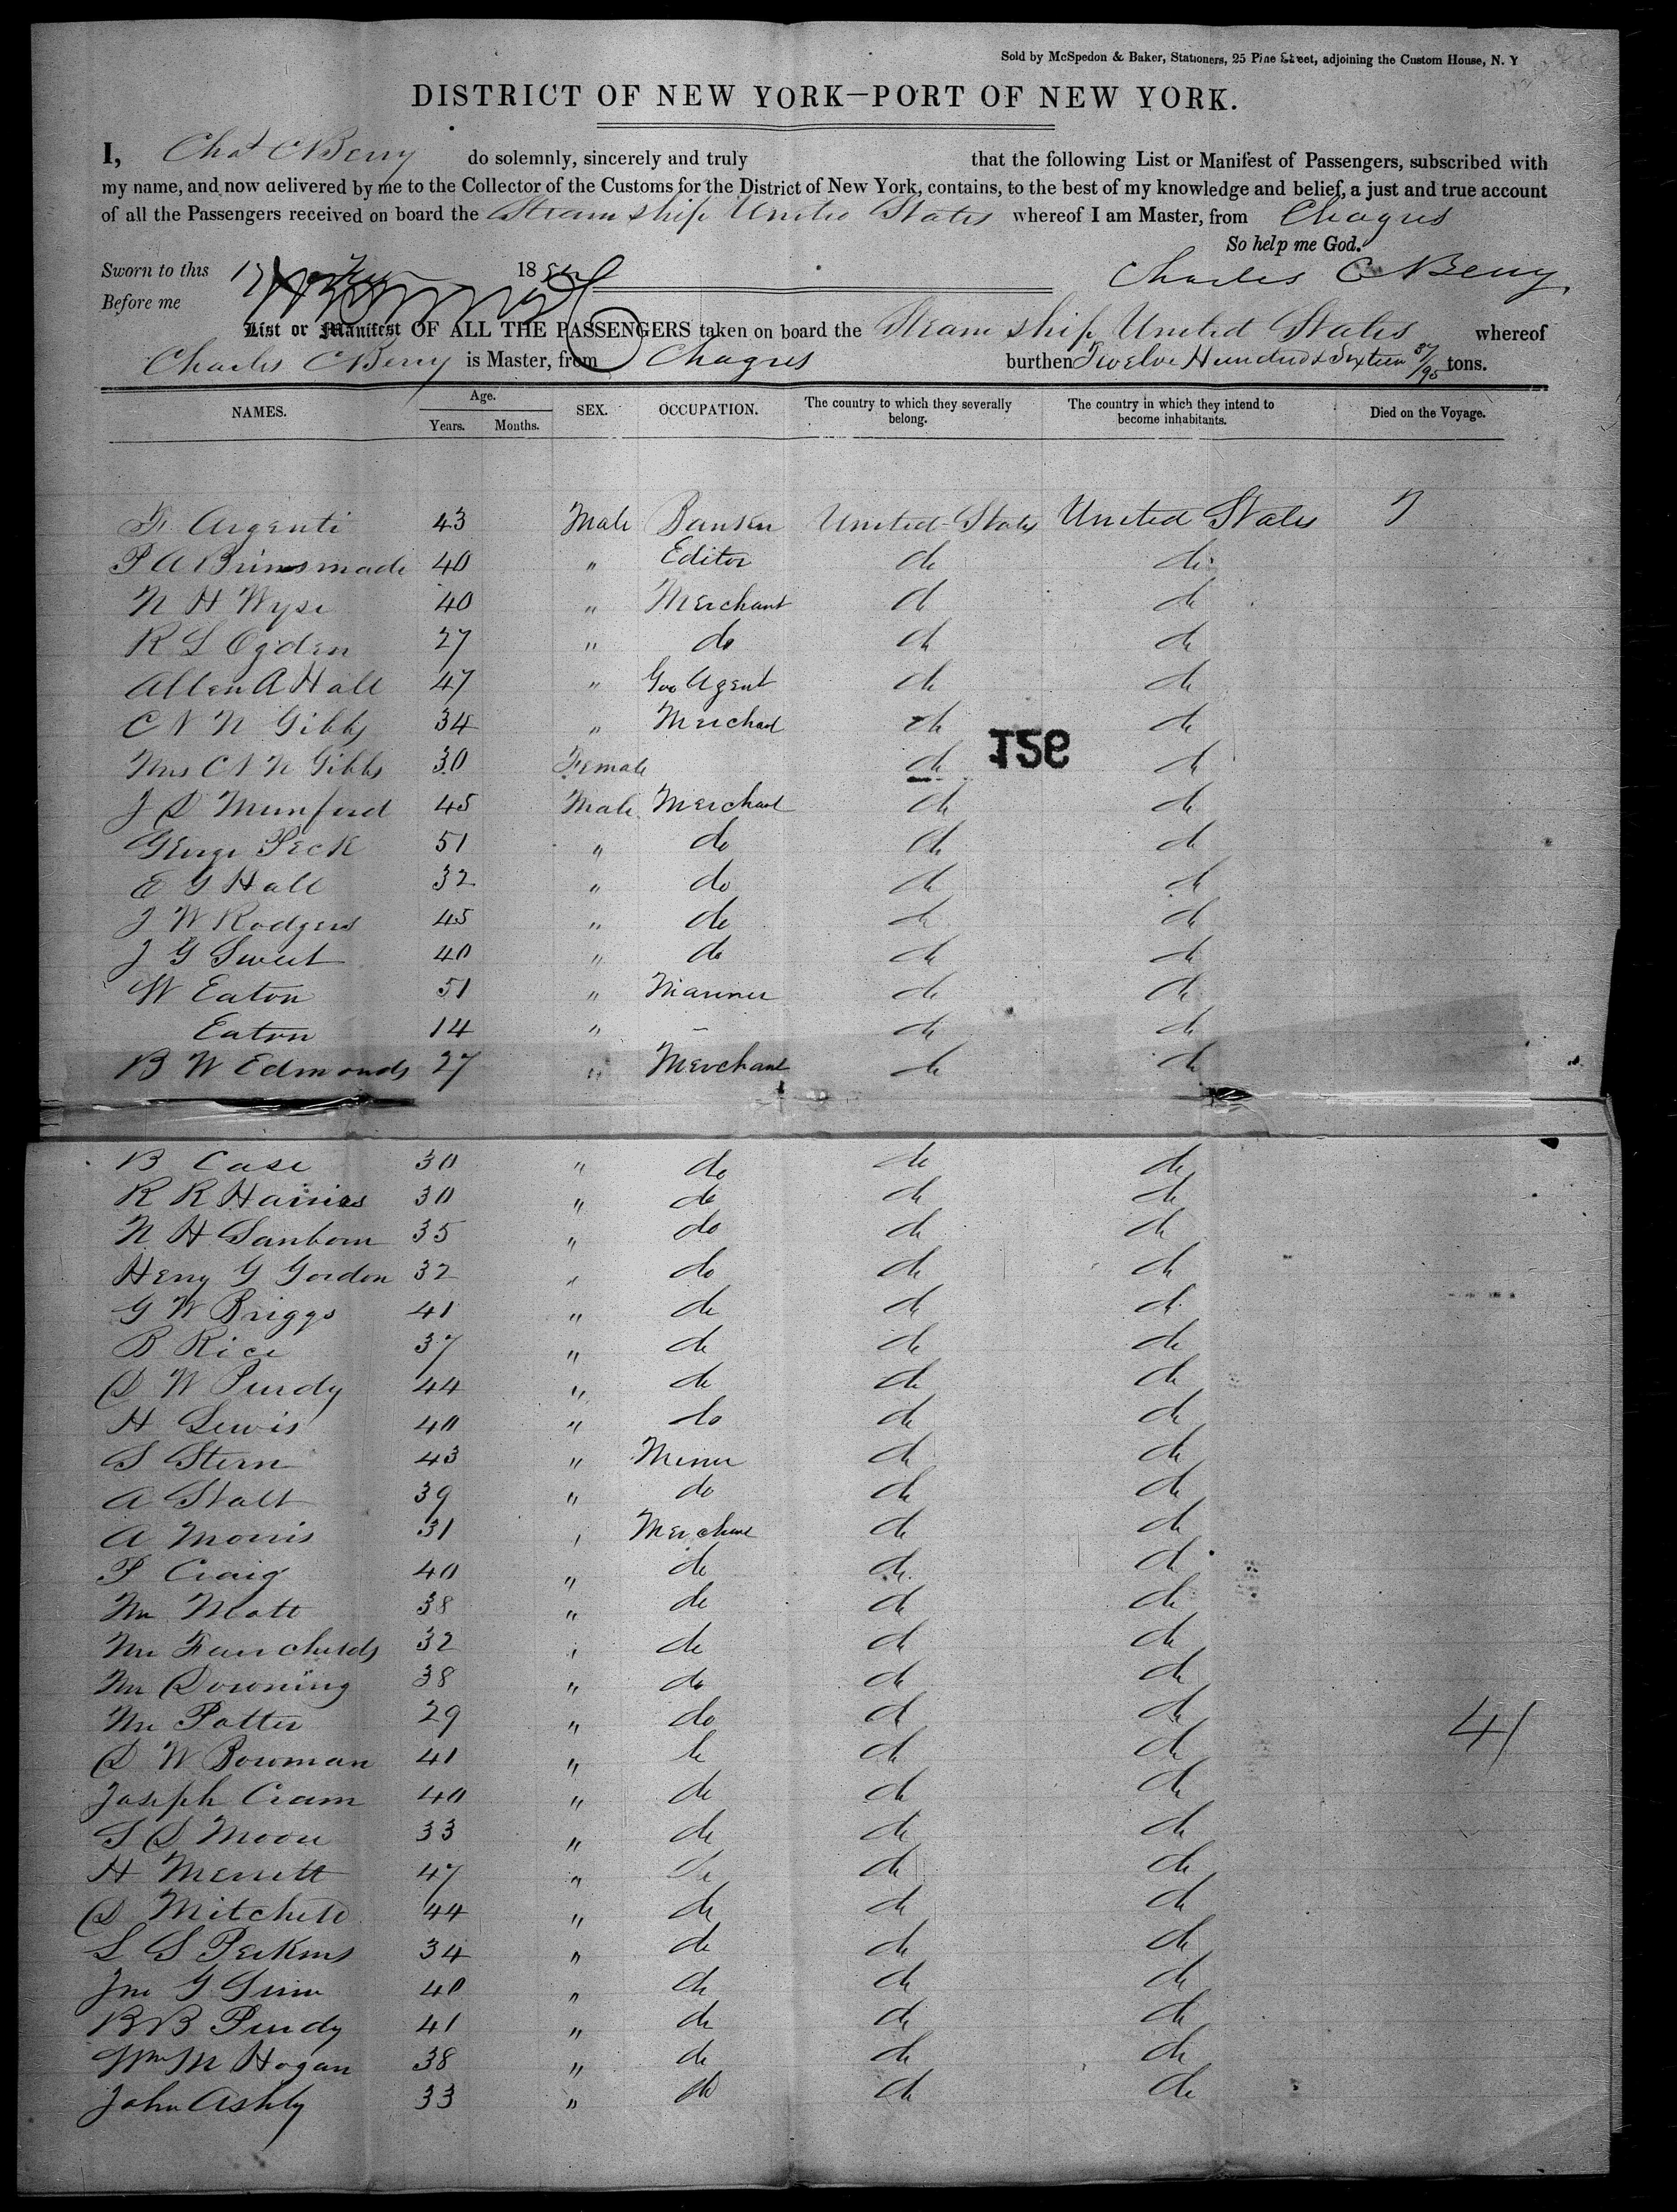 Sold by McSpedon & Baker, Stationers, 25 Pine Street, adjoining the Custom House, N. Y
DISTRICT OF NEW YORK—PORT OF NEW YORK.
I, Chas C Berry do solemnly, sincerely and truly that the following List or Manifest of Passengers, subscribed with
my name, and now delivered by me to the Collector of the Customs for the District of New York, contains, to the best of my knowledge and belief, a just and true account
of all the Passengers received on board the Steam ship United States whereof I am Master, from Chagres
So help me God.
Sworn to this 18
Charles C Berry
Before me
List or Manifest OF ALL THE PASSENGERS taken on board the Steam ship United States whereof
Charles C Berry is Master, from Chagres burthen Twelve Hundred & Sixteen 87/95 tons.
NAMES. Age. Years. Months. SEX. OCCUPATION. The country to which they severally belong. The country in which they intend to become inhabitants. Died on the Voyage.
F. Argenti 43 Male Banker United States United States
P A Brinsmade 40 " Editor do do
N H Wyse 40 " Merchant do do
R L Ogden 27 " do do do
Allen A Hall 47 " Gov Agent do do
C V N Gibbs 34 " Merchant do do
159
Mrs C V N Gibbs 30 Female do do
J D Munford 45 Male Merchant do do
George Peck 51 " do do do
E G Hall 32 " do do do
J W Rodgers 45 " do do do
J G Sweet 40 " do do do
W Eaton 51 " Mariner do do
Eaton 14 " – do do
B W Edmonds 27 " Merchant do do
B Case 30 " do do do
R R Haines 30 " do do do
N H Sanborn 35 " do do do
Henry G Gordon 32 " do do do
G W Briggs 41 " do do do
B Rice 37 " do do do
D W Purdy 44 " do do do
H Lewis 40 " do do do
S Stern 43 " Miner do do
A Stalt 39 " do do do
A Morris 31 " Merchant do do
P Craig 40 " do do do
Mr Mott 38 " do do do
Mr Fairchilds 32 " do do do
Mr Downing 38 " do do do
Mr Potter 29 " do do do
41
D W Bowman 41 " do do do
Joseph Cram 40 " do do do
S D Moore 33 " do do do
H Merrett 47 " do do do
D Mitchell 44 " do do do
L S Perkins 34 " do do do
Jno G 40 " do do do
B B Purdy 41 " do do do
Wm M Hogan 38 " do do do
John Ashby 33 " do do do